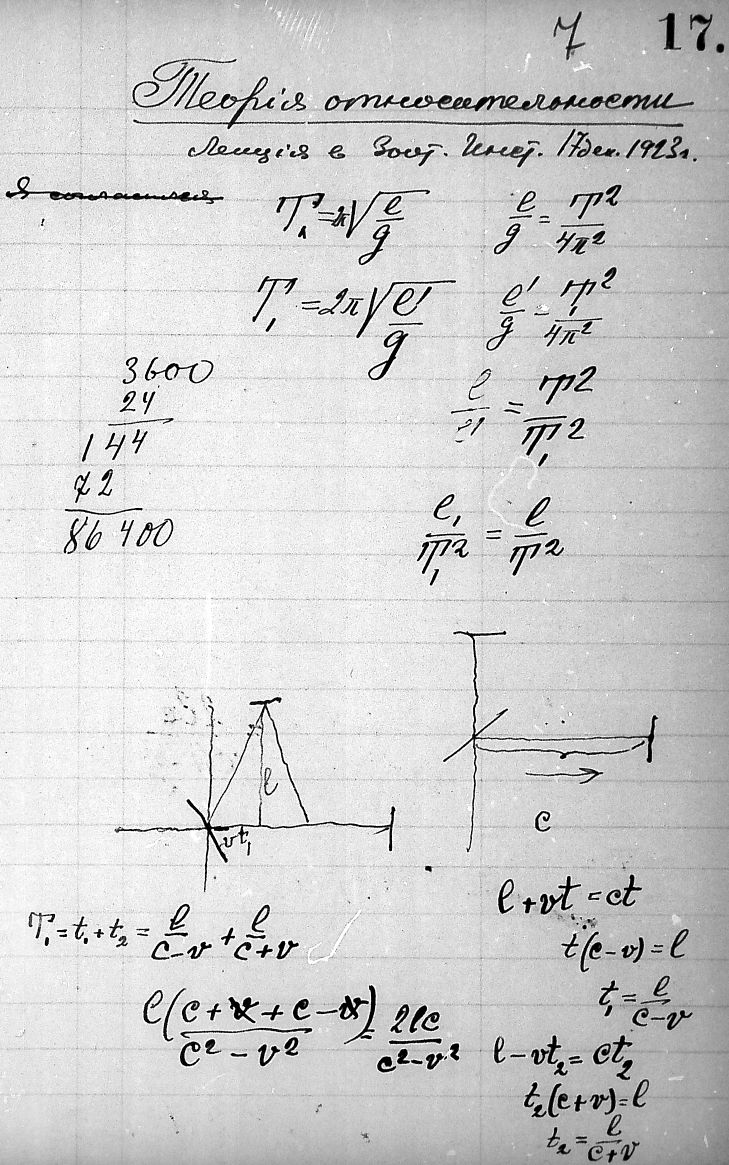 7 17.
Теорія относительности
Лекція в Зоот. Инст. 17 дек. 1923 г.
T₁ = 2π√(l/g) l/g = T²/4π²
T₁ = 2π√(l'/g) l'/g = T₁²/4π²
3600
24
144
72
86400
l/l' = T²/T₁²
l₁/T₁² = l/T²
l
vt₁
c
l + vt = ct
T₁ = t₁ + t₂ = l/(c-v) + l/(c+v)
t(c-v) = l
t₁ = l/(c-v)
l(c+v+c-v)/(c²-v²) = 2lc/(c²-v²)
l - vt₂ = ct₂
t₂(c+v) = l
t₂ = l/(c+v)